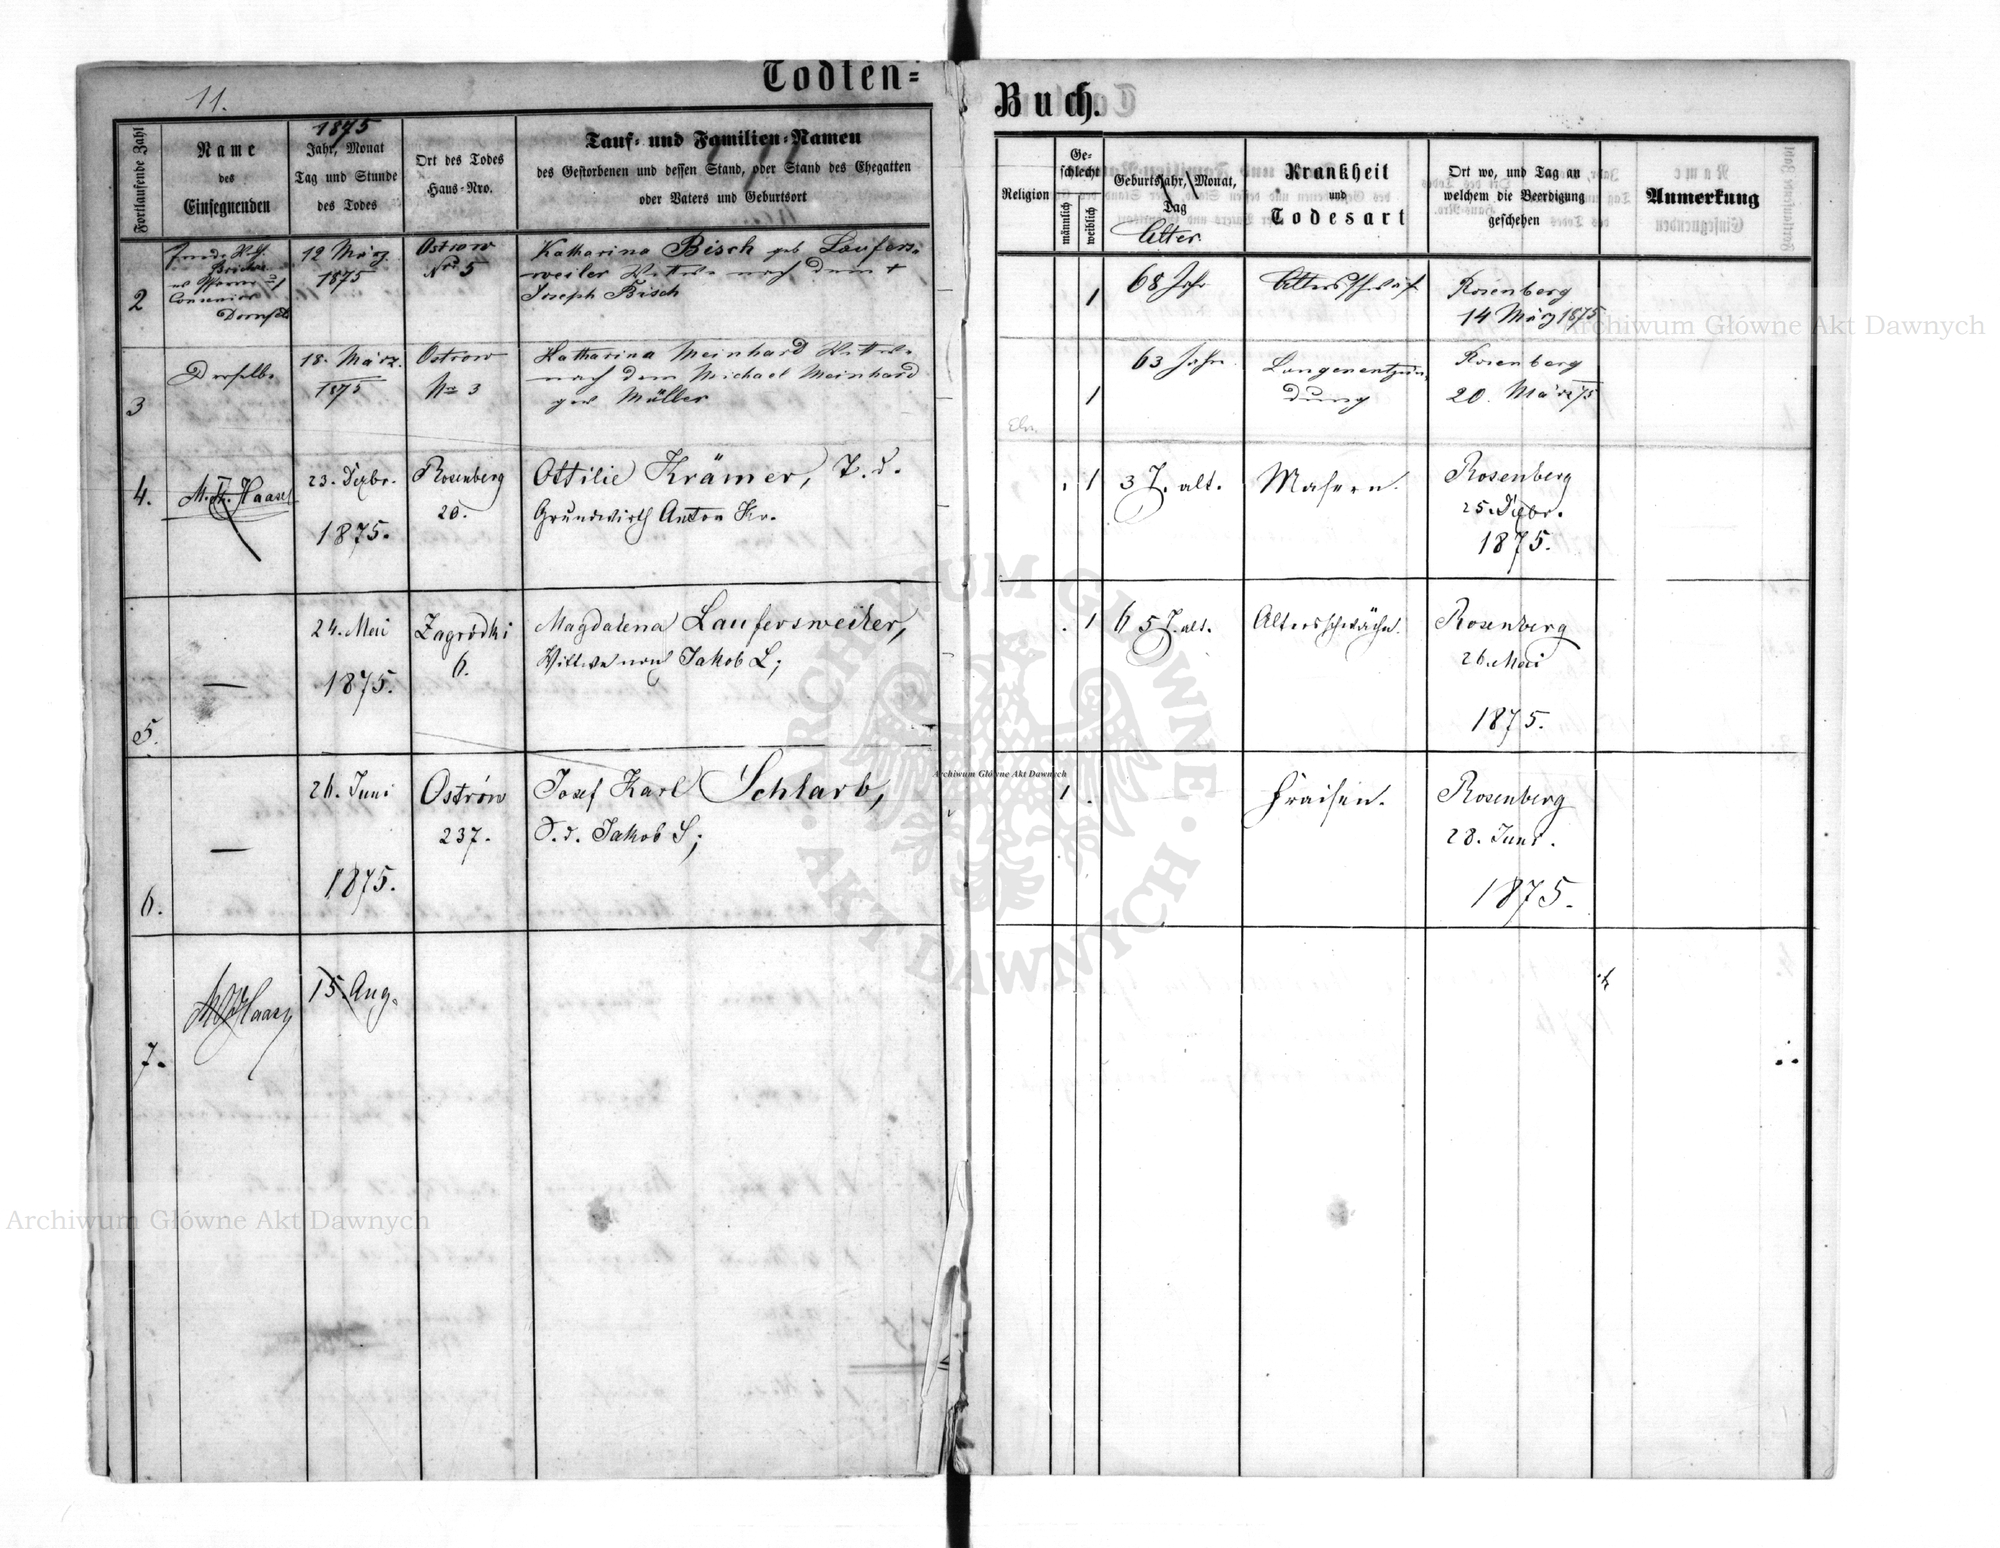 Todten=
Buch.
11.
Fortlaufende Zahl
Name
des
Einsegnenden
1875
Jahr, Monat
Tag und Stunde
des Todes
Ort des Todes
Haus=Nro.
Tauf= und Familien=Namen
des Gestorbenen und dessen Stand, oder Stand des Ehegatten
oder Vaters und Geburtsort
Religion
Ge=
schlecht
männlich
weiblich
Geburtsjahr, Monat,
Tag
Alter
Krankheit
und
Todesart
Ort wo, und Tag an
welchem die Beerdigung
geschehen
Anmerkung
2
12 März
1875
Ostrow
Nro 5
Katharina Bisch geb Laufers=
weiler Witwe nach dem +
Joseph Bisch
1
68 Jahr
Rosenberg
14 März 1875
3
Derselbe
18. März.
1875
Ostrow
No 3
Katharina Meinhard Witwe
nach dem Michael Meinhard
gew Müller
1
63 Jahr
Lungenentzün=
dung
Rosenberg
20. März 75
4.
Haasel
23. Dezbr.
1875.
Rosenberg
20.
Ottilie Krämer, T. d.
Grundwirth Anton Kr.
. 1
3 J. alt.
Masern.
Rosenberg
25. Dzbr.
1875.
5.
—
24. Mai
1875.
Zagródki
6.
Magdalena Laufersweiler,
Wittwe nach Jakob L;
. 1
65 J. alt.
Altersschwäche.
Rosenberg
26. Mai
1875.
6.
—
26. Juni
1875.
Ostrów
237.
Josef Karl Schlarb,
S. d. Jakob S;
1 .
Fraisen.
Rosenberg
28. Juni.
1875.
7.
15. Aug.
Archiwum Główne Akt Dawnych
Archiwum Główne Akt Dawnych
Archiwum Główne Akt Dawnych
ARCHIWUM GŁÓWNE · AKT DAWNYCH ·